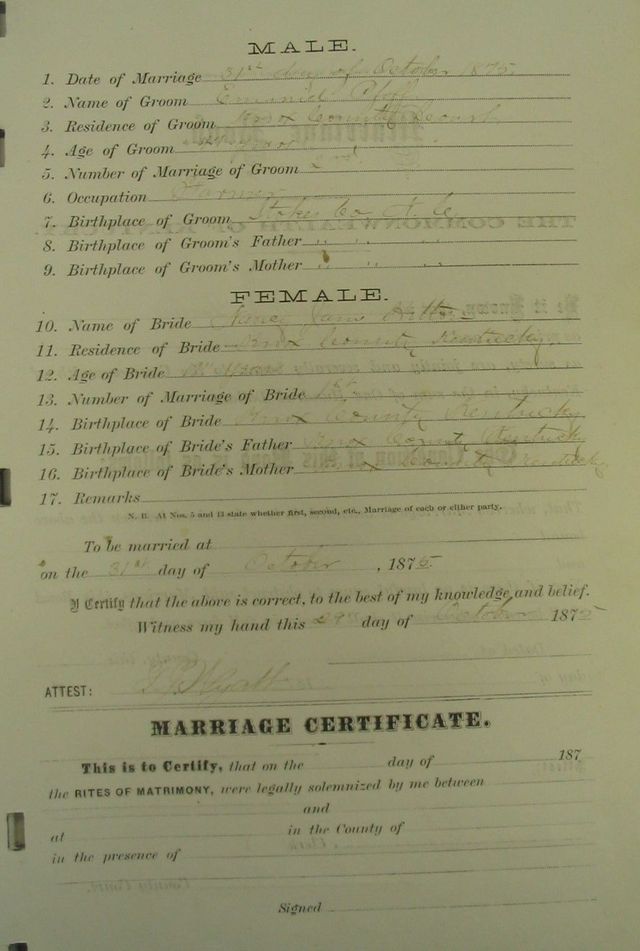 MALE.
1. Date of Marriage 31st day of October 1875
2. Name of Groom
3. Residence of Groom Knox County
4. Age of Groom
5. Number of Marriage of Groom
6. Occupation Farmer
7. Birthplace of Groom Stokes Co N. C.
8. Birthplace of Groom's Father " " "
9. Birthplace of Groom's Mother " " "
FEMALE.
10. Name of Bride Nancy Jane
11. Residence of Bride Knox County Kentucky
12. Age of Bride
13. Number of Marriage of Bride 1st
14. Birthplace of Bride Knox County Kentucky
15. Birthplace of Bride's Father Knox County Kentucky
16. Birthplace of Bride's Mother Knox County Kentucky
17. Remarks
N. B. At Nos. 5 and 13 state whether first, second, etc., Marriage of each or either party.
To be married at
on the 31st day of October, 1875.
I Certify that the above is correct, to the best of my knowledge and belief.
Witness my hand this day of October 1875
ATTEST:
MARRIAGE CERTIFICATE.
This is to Certify, that on the day of 187
the RITES OF MATRIMONY, were legally solemnized by me between
and
at in the County of
in the presence of
Signed